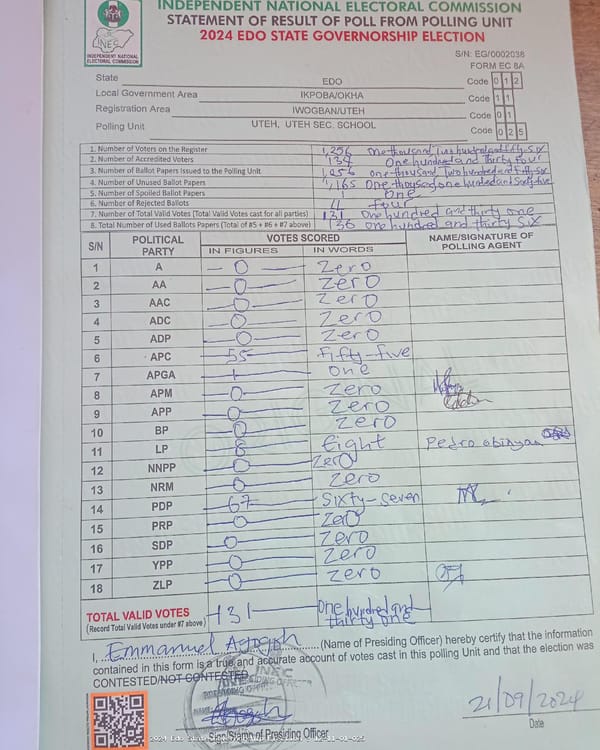 INDEPENDENT NATIONAL ELECTORAL COMMISSION
STATEMENT OF RESULT OF POLL FROM POLLING UNIT
2024 EDO STATE GOVERNORSHIP ELECTION
INEC
INDEPENDENT NATIONAL ELECTORAL COMMISSION
S/N: EG/0002038
FORM EC 8A
State EDO Code 0 1 2
Local Government Area IKPOBA/OKHA Code 1 1
Registration Area IWOGBAN/UTEH Code 0 1
Polling Unit UTEH, UTEH SEC. SCHOOL Code 0 2 5
1. Number of Voters on the Register 1,256 One thousand, two hundred and fifty six
2. Number of Accredited Voters 134 One hundred and thirty four
3. Number of Ballot Papers Issued to the Polling Unit 1,256 one thousand Two hundred and fifty six
4. Number of Unused Ballot Papers 1,165 One thousand one hundred and sixty five
5. Number of Spoiled Ballot Papers 1 one
6. Number of Rejected Ballots 4 four
7. Number of Total Valid Votes (Total Valid Votes cast for all parties) 131 One hundred and thirty one
8. Total Number of Used Ballots Papers (Total of #5 + #6 + #7 above) 136 one hundred and thirty six
S/N POLITICAL PARTY VOTES SCORED NAME/SIGNATURE OF POLLING AGENT
IN FIGURES IN WORDS
1 A 0 Zero
2 AA 0 Zero
3 AAC 0 Zero
4 ADC 0 Zero
5 ADP 0 Zero
6 APC 55 fifty-five
7 APGA 1 one
8 APM 0 Zero
9 APP 0 Zero
10 BP 0 Zero
11 LP 8 Eight Pedro
12 NNPP 0 Zero
13 NRM 0 Zero
14 PDP 67 Sixty-seven
15 PRP 0 Zero
16 SDP 0 Zero
17 YPP 0 Zero
18 ZLP 0 Zero
TOTAL VALID VOTES 131 One hundred and thirty one
(Record Total Valid Votes under #7 above)
I, Emmanuel (Name of Presiding Officer) hereby certify that the information
contained in this form is a true and accurate account of votes cast in this polling Unit and that the election was
CONTESTED/NOT CONTESTED.
INEC
PRESIDING OFFICER
Sign/Stamp of Presiding Officer
21/09/2024
Date